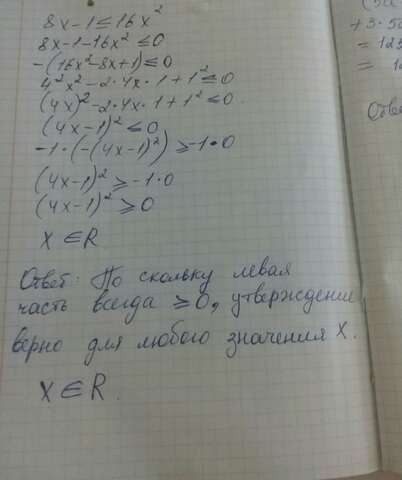 8x-1≤16x²
8x-1-16x²≤0
-(16x²-8x+1)≤0
4²x²-2·4x·1+1²≤0
(4x)²-2·4x·1+1²≤0.
(4x-1)²≤0
-1·(-(4x-1)²)≥-1·0
(4x-1)²≥-1·0
(4x-1)²≥0
x∈R
Ответ: По скольку левая
часть всегда ≥0, утверждение
верно для любого значения х.
x∈R.
(5a
+3·5a
=125
=1
Отве